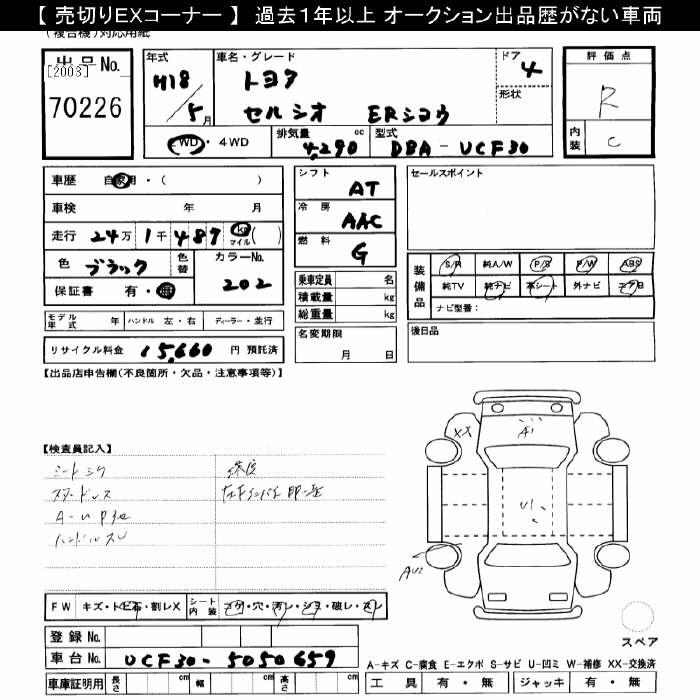 【 売切りEXコーナー 】 過去1年以上 オークション出品歴がない車両
(複合機)対応用紙
出品No.
[2003]
70226
年式
H18/5月
車名・グレード
トヨタ
セルシオ ERシヨウ
ドア
4
形状
評価点
R
内装
C
2WD・4WD
排気量 cc
4,290
型式
DBA-UCF30
車歴 自家用・( )
車検 年 月
走行 24万1千487 km マイル( )
色 ブラック
色替
カラーNo.
202
保証書 有・無
シフト
AT
冷房
AAC
燃料
G
乗車定員 名
積載量 kg
総重量 kg
名変期限
月 日
セールスポイント
装備品
S/R 純A/W P/S P/W ABS
純TV 純ナビ 革シート 外ナビ エアB
ナビ型番:
後日品
モデル年式 年 ハンドル 左・右 ディーラー・並行
リサイクル料金 15,660 円 預託済
【出品店申告欄(不良箇所・欠品・注意事項等)】
【検査員記入】
XX
A1
U1
AU2
FW キズ・トビ石・割レX
シート内装 コゲ・穴・汚レ・シミ・破レ・スレ
登録No.
車台No. UCF30-5050659
車庫証明用 長さ cm 幅 cm 高さ cm
スペア
A-キズ C-腐食 E-エクボ S-サビ U-凹ミ W-補修 XX-交換済
工具 有・無 ジャッキ 有・無